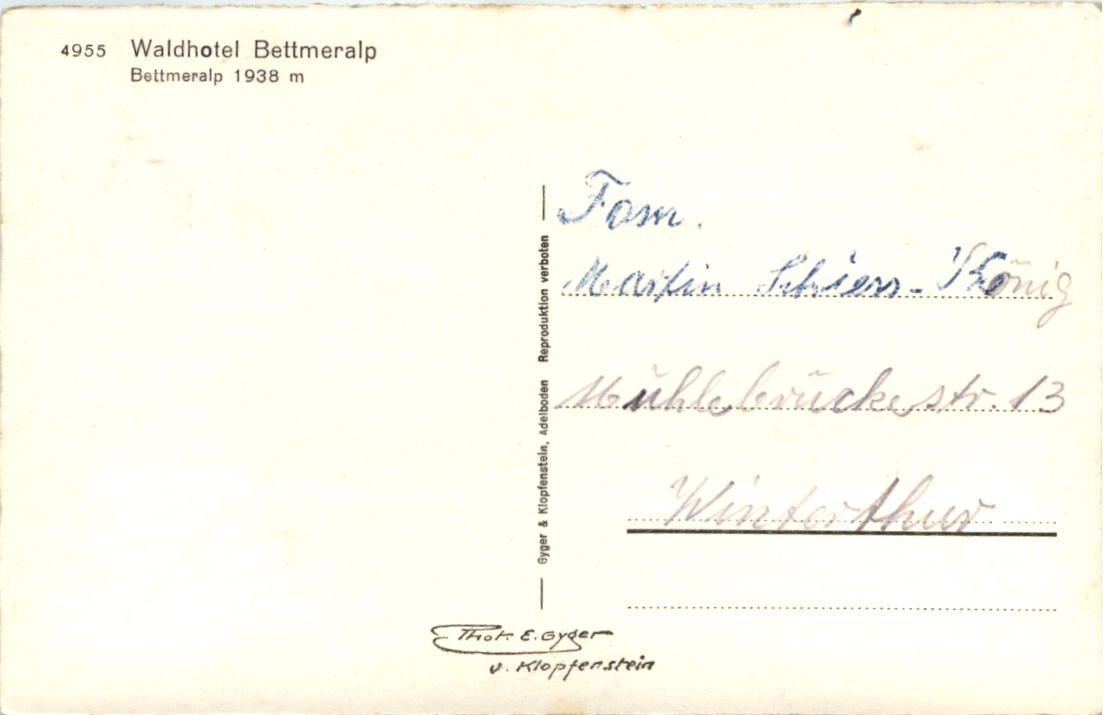 4955 Waldhotel Bettmeralp
Bettmeralp 1938 m
Gyger & Klopfenstein, Adelboden Reproduktion verboten
Fam.
Martin Schiess-König
Mühlebrückestr. 13
Winterthur
Phot. E. Gyger
u. Klopfenstein